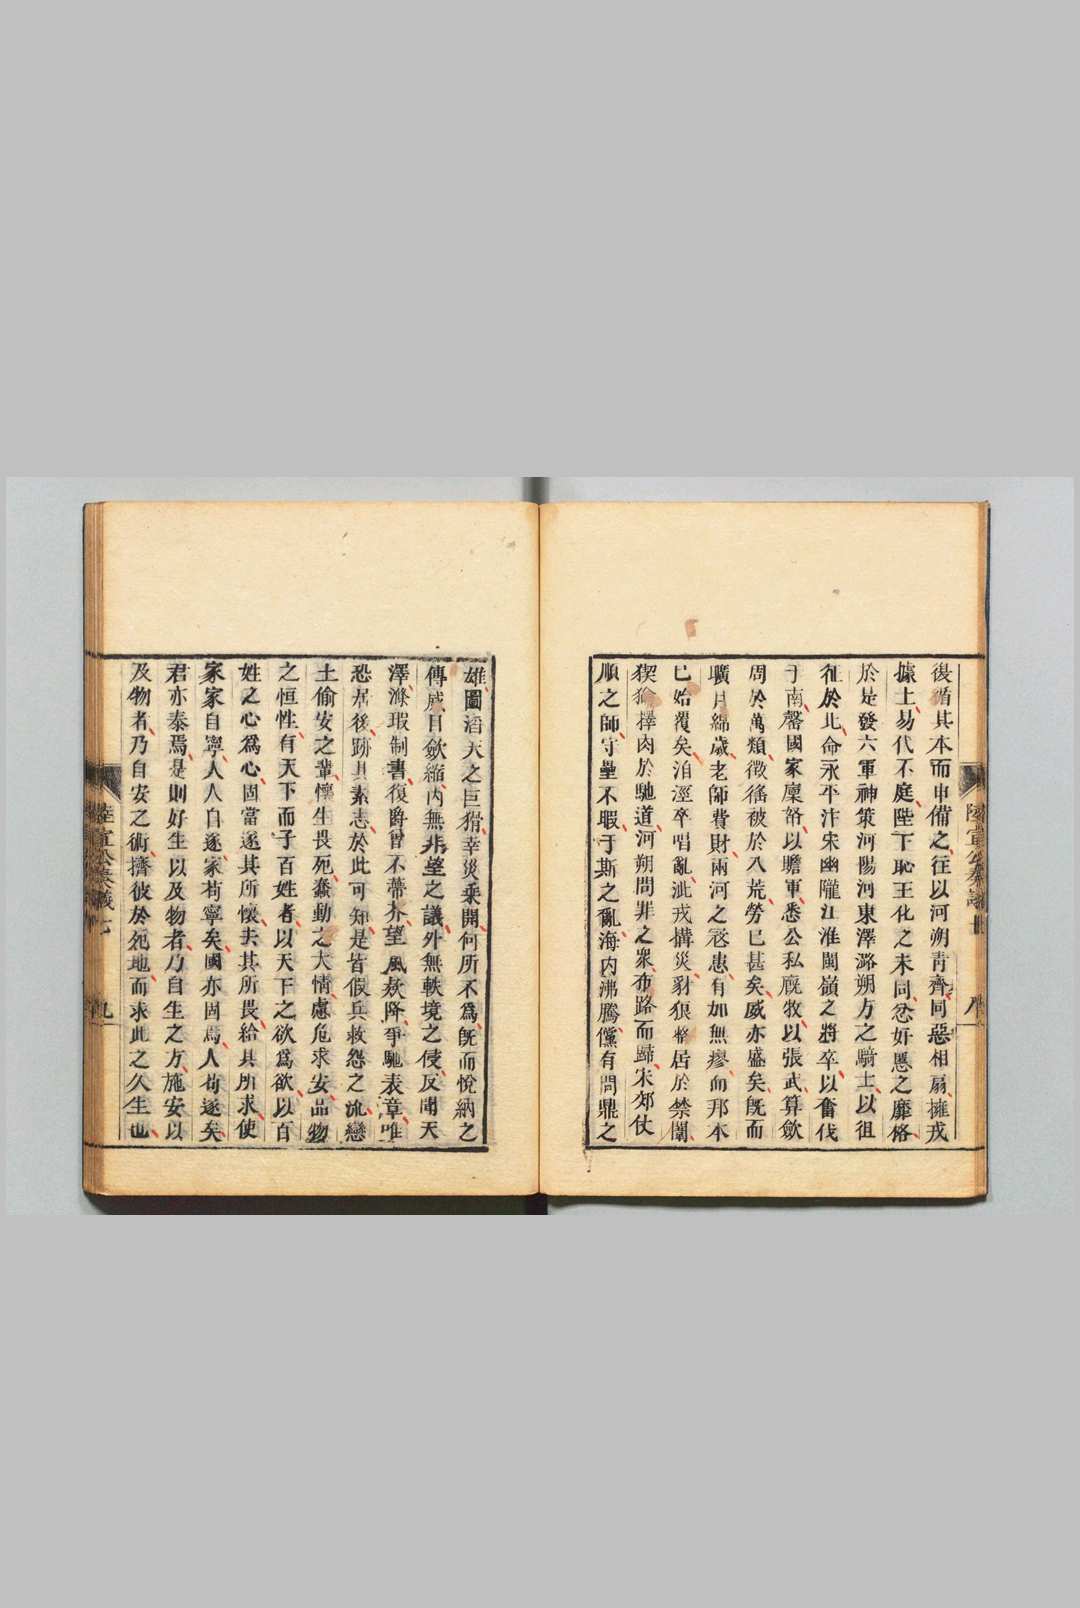 後循其本而申備之往以河朔青齊同惡相扇擁戎
據土易代不庭陛下恥王化之未同忿奸慝之靡格
於是發六軍神策河陽河東澤潞朔方之騎士以徂
征於北命永平汴宋幽隴江淮閩嶺之將卒以奮伐
于南罄國家廩帑以贍軍悉公私廐牧以張武算斂
周於萬類徵徭被於八荒勞已甚矣威亦盛矣旣而
曠月綿歲老師費財兩河之寇患有加無瘳而邦本
已始覆矣洎涇卒唱亂泚戎搆災豺狼整居於禁闈
猰㺄擇肉於馳道河朔問罪之衆布路而歸宋郊仗
順之師守壘不暇于斯之亂海内沸騰儻有問鼎之
雄圖滔天之巨猾幸災乘閒何所不爲旣而悅納之
傳咸自斂縮内無非望之議外無軼境之侵及聞天
澤滌瑕制書復爵曾不蔕芥望風欵降爭馳表章唯
恐居後跡其素志於此可知是皆假兵救怨之流戀
土偷安之輩懷生畏死蠢動之大情慮危求安品物
之恒性有天下而子百姓者以天下之欲爲欲以百
姓之心爲心固當遂其所懷去其所畏給其所求使
家家自寧人人自遂家苟寧矣國亦固焉人苟遂矣
君亦泰焉是則好生以及物者乃自生之方施安以
及物者乃自安之術擠彼於死地而求此之久生也
陸宣公奏議 八
陸宣公奏議七 九